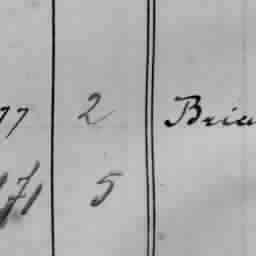 77 2 Briu
171 5